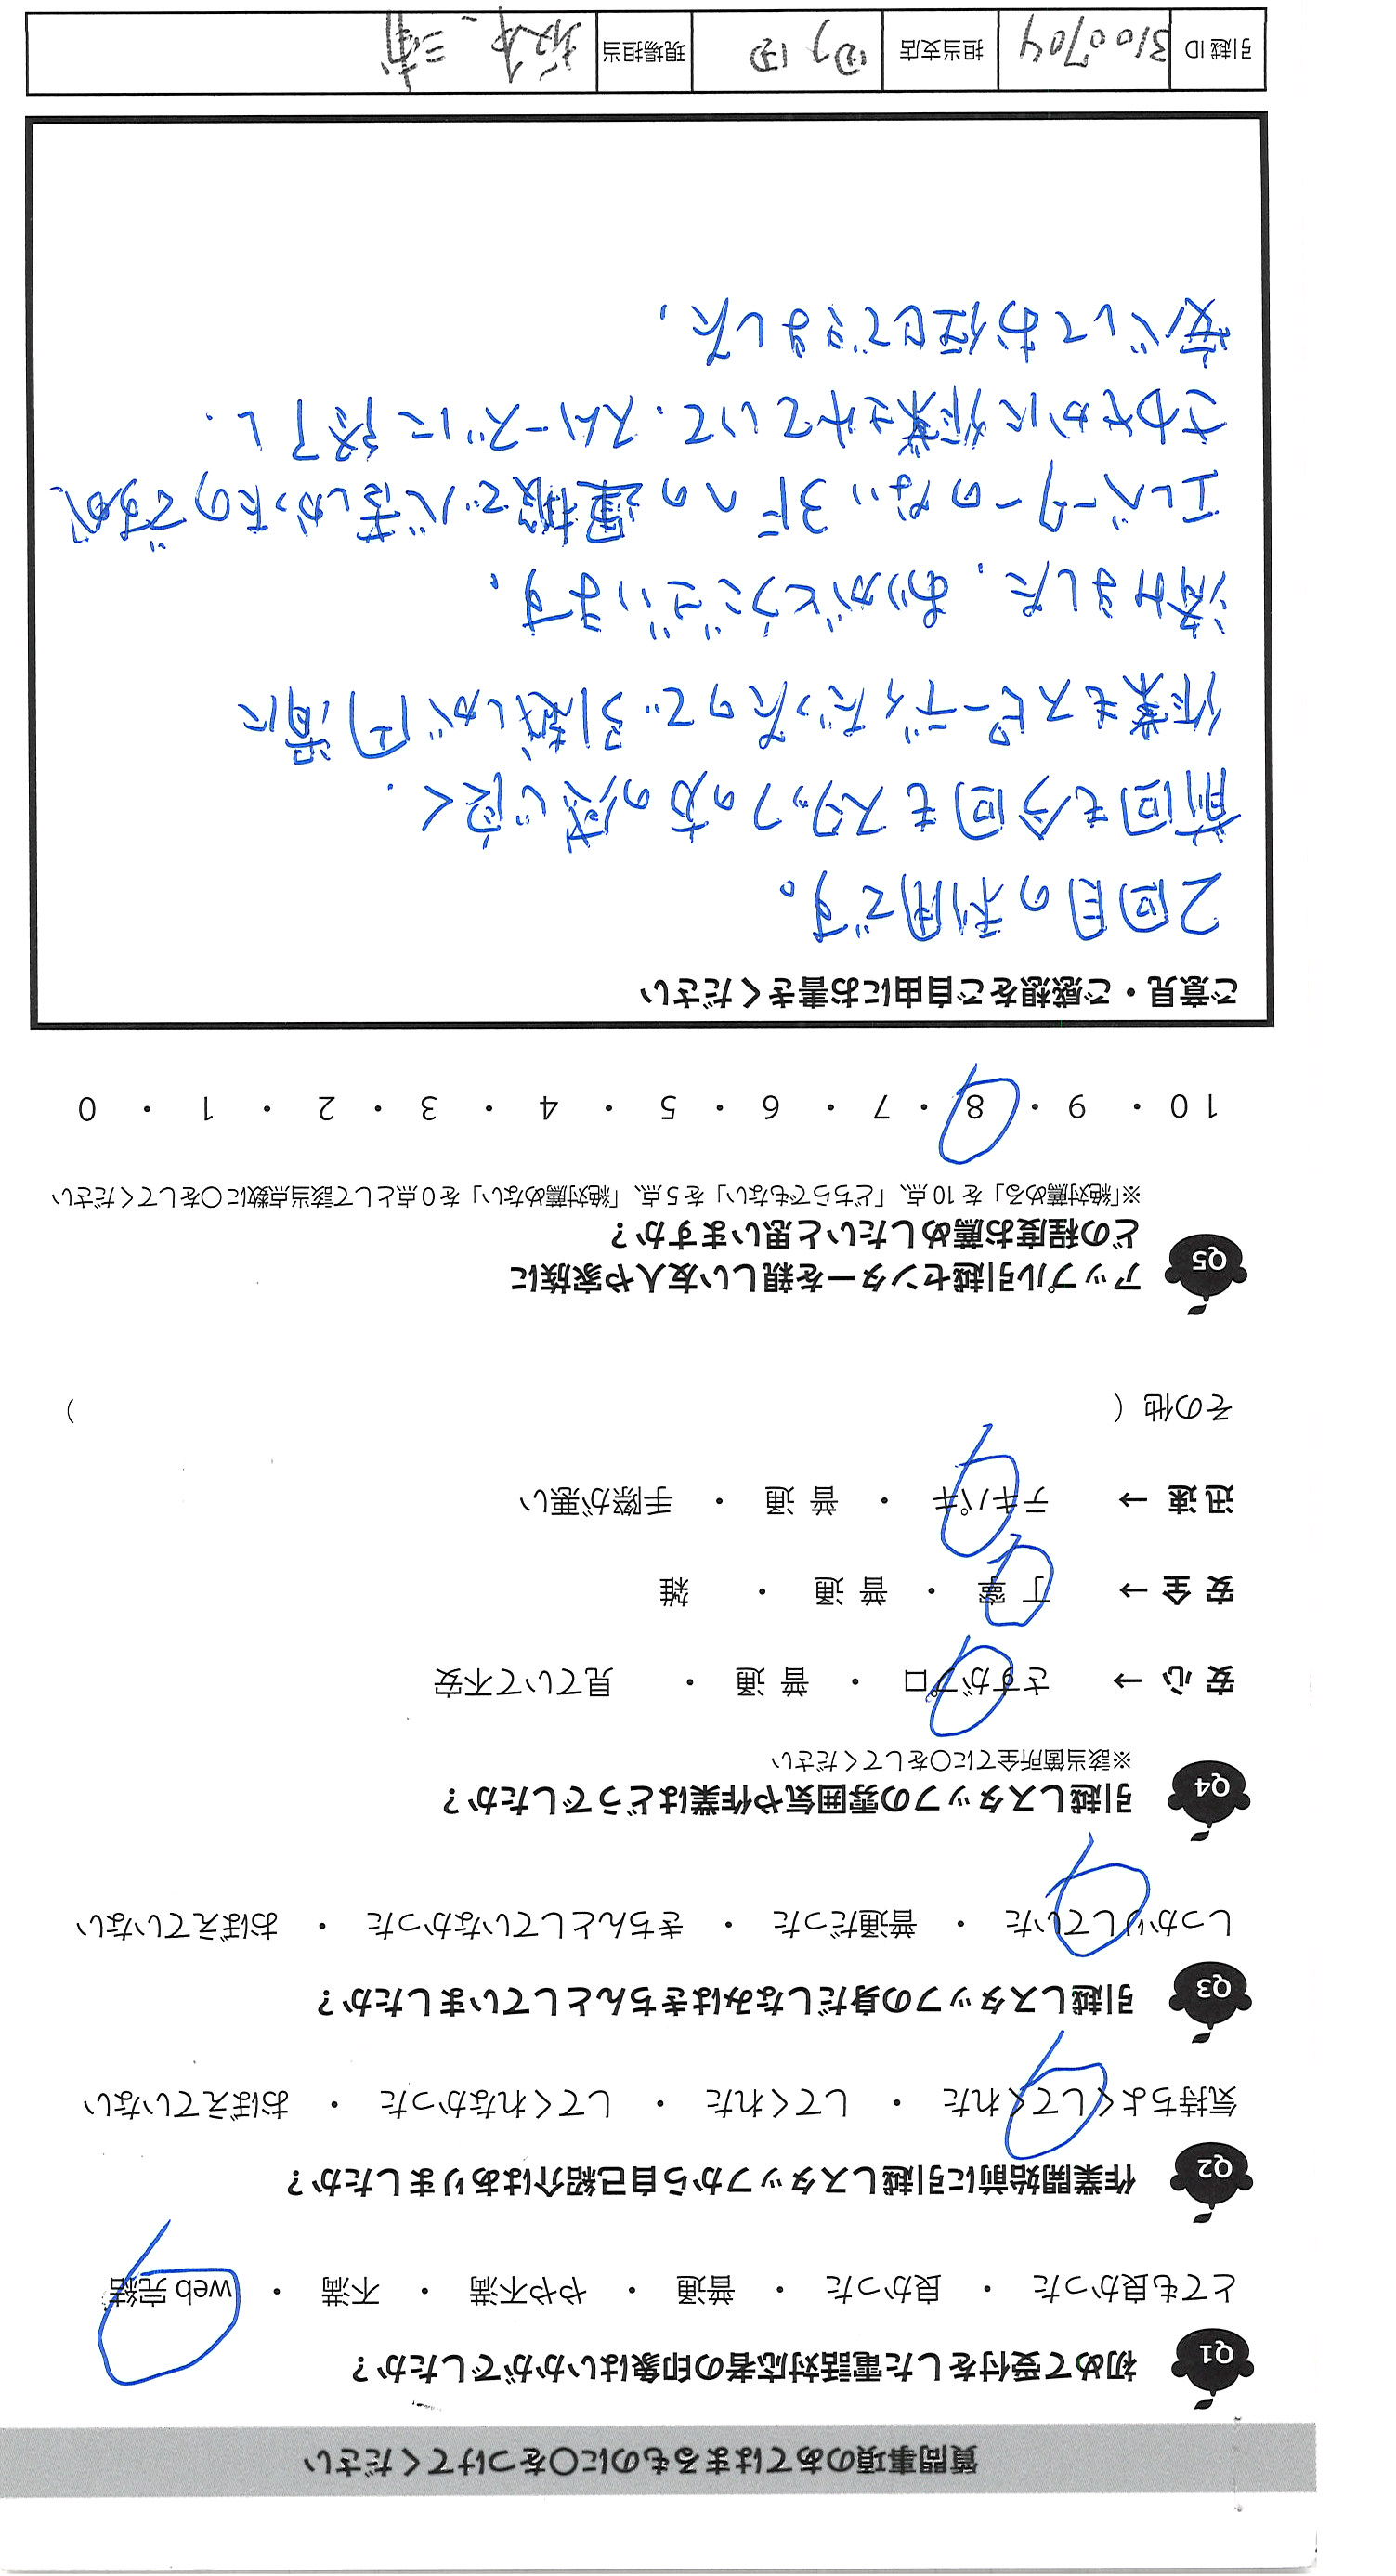 質問事項のあてはまるものに〇をつけてください
Q1 初めて受付をした電話対応者の印象はいかがでしたか？
とても良かった ・ 良かった ・ 普通 ・ やや不満 ・ 不満 ・ web 完結
Q2 作業開始前に引越しスタッフから自己紹介はありましたか？
気持ちよくしてくれた ・ してくれた ・ してくれなかった ・ おぼえていない
Q3 引越しスタッフの身だしなみはきちんとしていましたか？
しっかりしていた ・ 普通だった ・ きちんとしていなかった ・ おぼえていない
Q4 引越しスタッフの雰囲気や作業はどうでしたか？
※該当箇所全てに〇をしてください
安心 → さすがプロ ・ 普通 ・ 見ていて不安
安全 → 丁寧 ・ 普通 ・ 雑
迅速 → テキパキ ・ 普通 ・ 手際が悪い
その他（ ）
Q5 アップル引越センターを親しい友人や家族に
どの程度お薦めしたいと思いますか？
※「絶対薦める」を 10 点、「どちらでもない」を 5 点、「絶対薦めない」を 0 点として該当点数に〇をしてください
10 ・ 9 ・ 8 ・ 7 ・ 6 ・ 5 ・ 4 ・ 3 ・ 2 ・ 1 ・ 0
ご意見・ご感想をご自由にお書きください
2回目の利用です。
前回も今回もスタッフの方の感じ良く、
作業もスピーディだったので引越しが円滑に
済けました、ありがとうございます。
エレベーターのない3Fへの運搬で心苦しかったのですが、
さわやかに作業されていて、スムーズに終了し、
安心してお任せできました、
引越 ID 3100704 担当支店 町田 現場担当 坂本、三浦